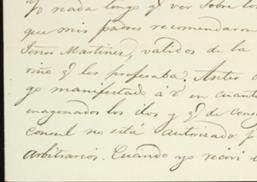 yo nada tengo q.e ver sobre lo
que mis padres recomendaron
Señor Martinez, validos de la
niño q.e les profesaba? Antes
go manifestado á V. en cuanto
enagenados los dos y q.e de
Consul no está autorizado p
arbitrarios. Cuando yo recivi